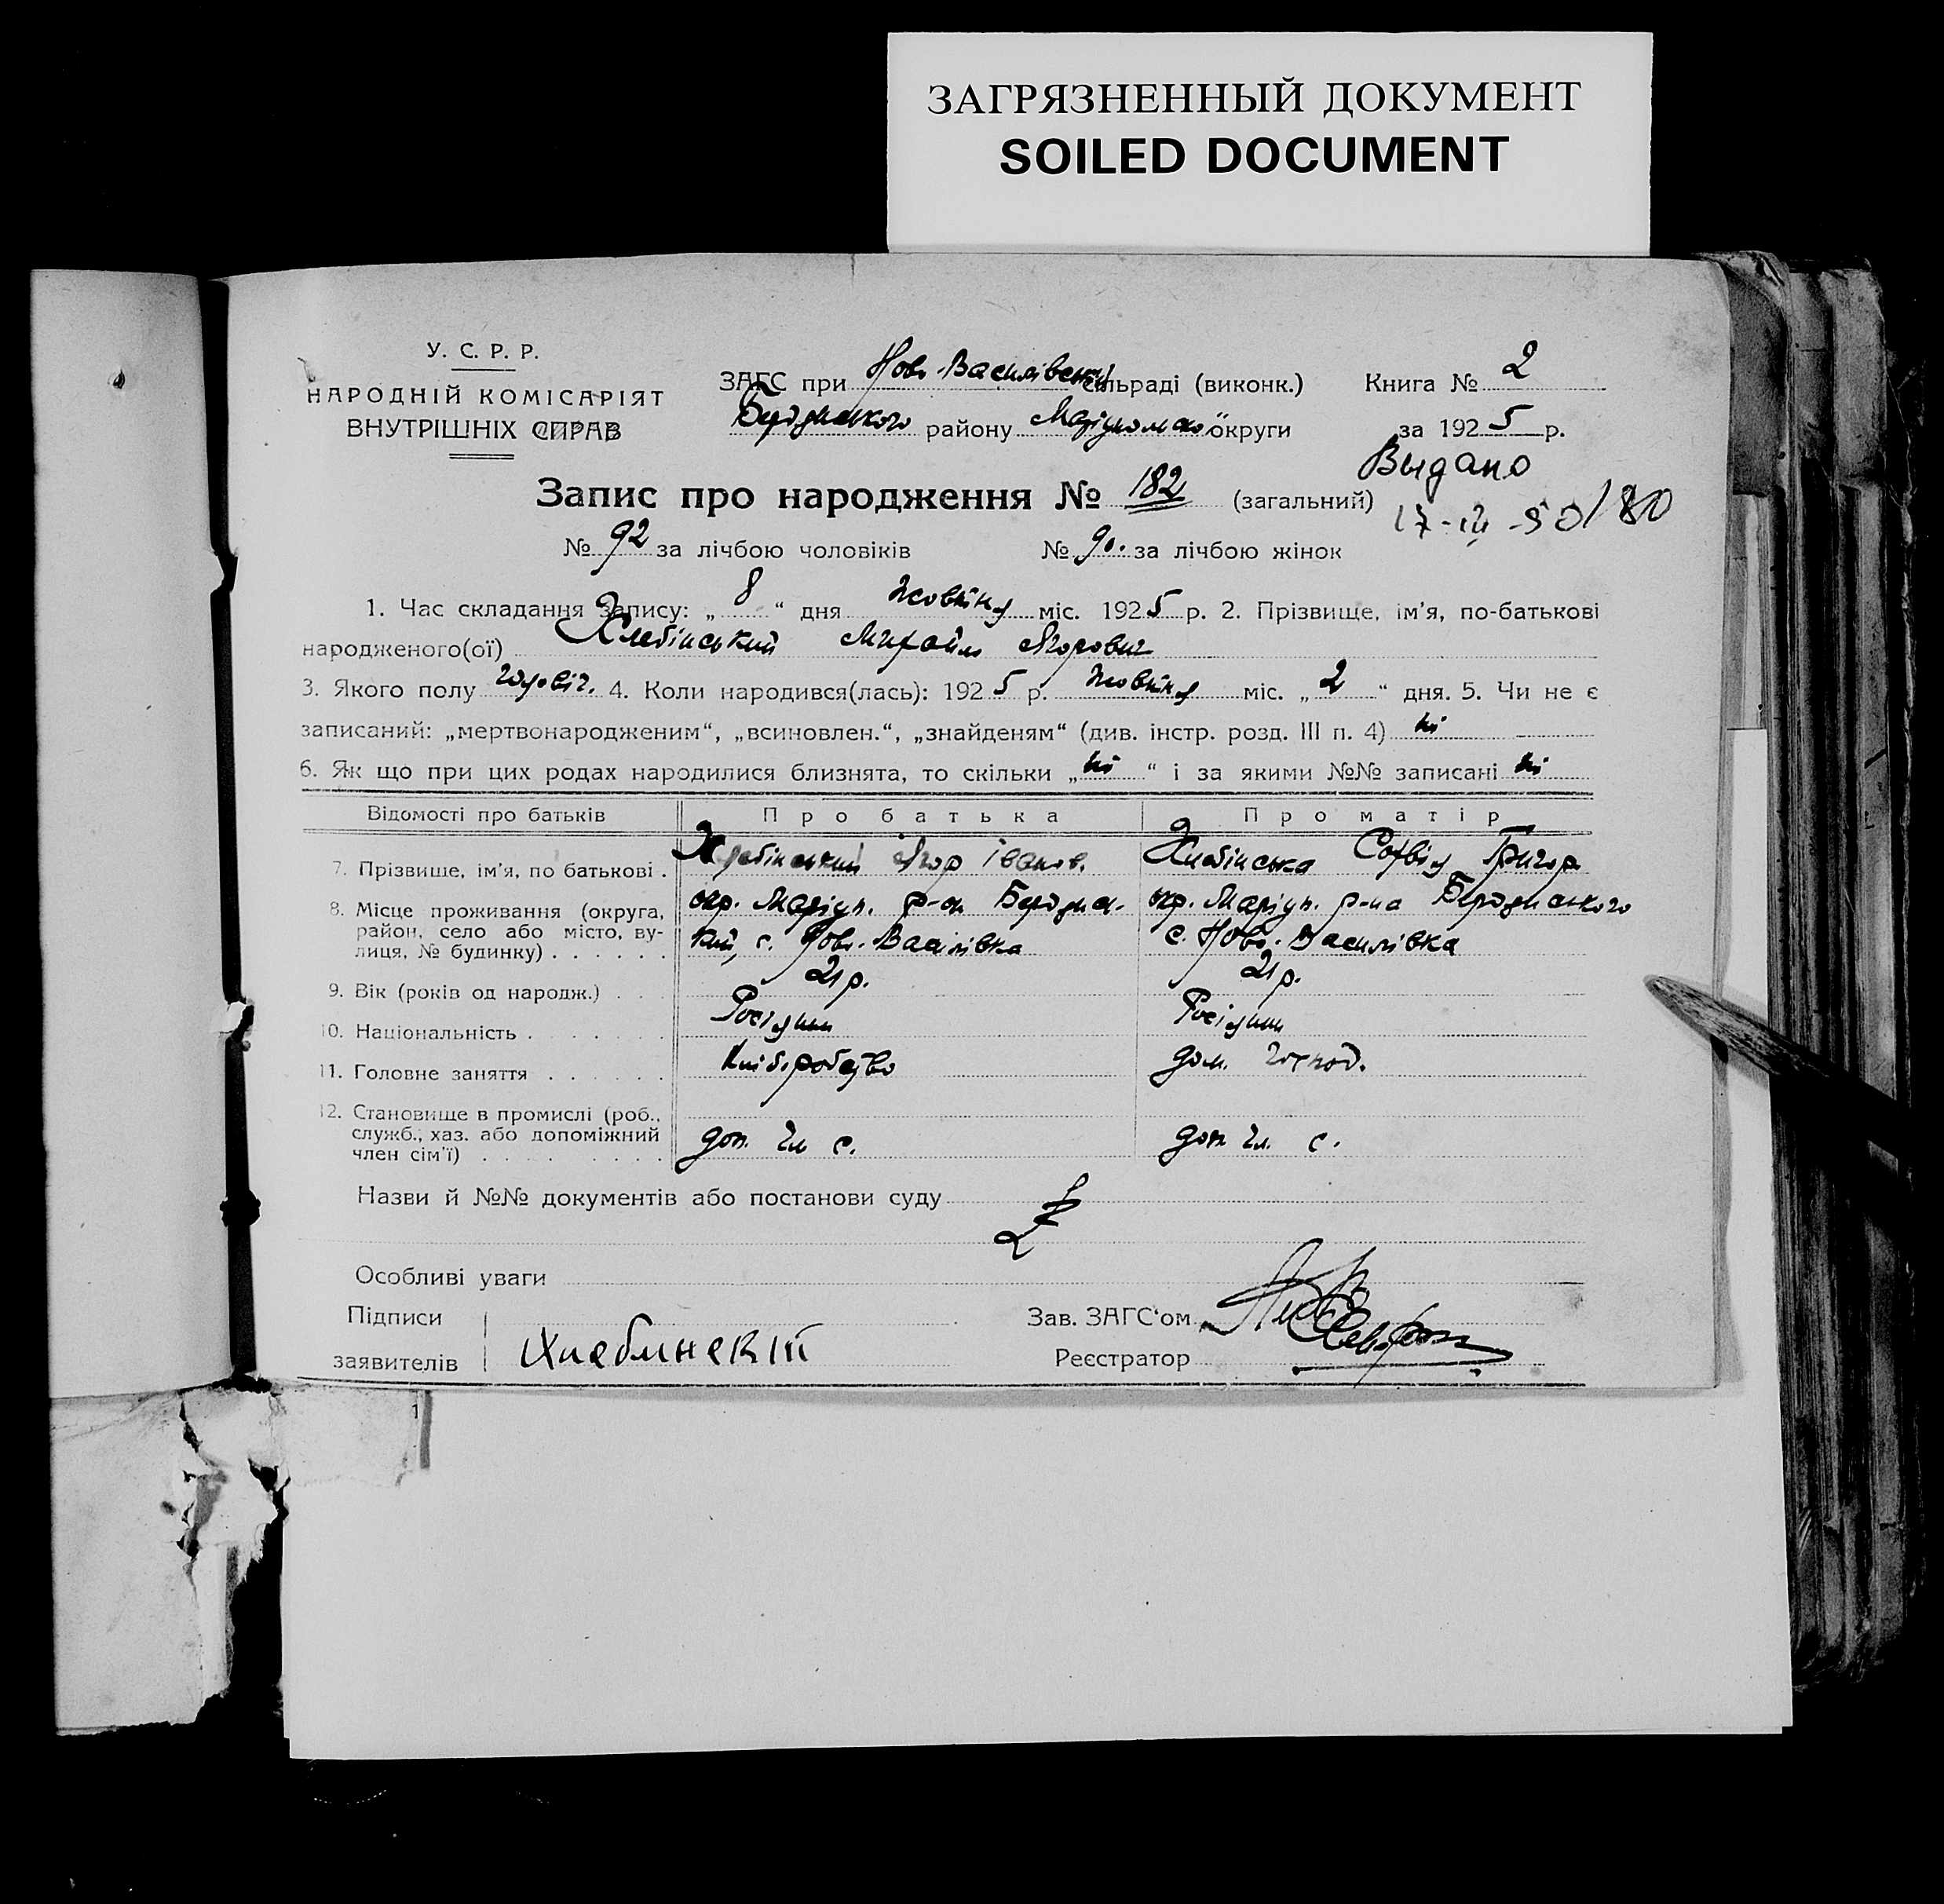 ЗАГРЯЗНЕННЫЙ ДОКУМЕНТ
SOILED DOCUMENT
У. С. Р. Р.
НАРОДНІЙ КОМІСАРІЯТ
ВНУТРІШНІХ СПРАВ
ЗАГС при Ново-Василівській сільраді (виконк.) Книга № 2
Бердянського району Маріупольської округи за 1925 р.
Выдано
Запис про народження № 182 (загальний)
№ 92 за лічбою чоловіків № 90. за лічбою жінок
1. Час складання запису: „ 8 “ дня жовтня міс. 1925 р. 2. Прізвище, ім’я, по-батькові
народженого(ої) Хлебінський Михайло Ягорович
3. Якого полу чоловіч. 4. Коли народився(лась): 1925 р. жовтня міс. „ 2 “ дня. 5. Чи не є
записаний: „мертвонародженим“, „всиновлен.“, „знайденям“ (див. інстр. розд. III п. 4) ні
6. Як що при цих родах народилися близнята, то скільки „ ні “ і за якими №№ записані ні
Відомості про батьків Про батька Про матір
7. Прізвище, ім’я, по батькові . Хлебінський Ягор Іванов. Хлебінська Григор
8. Місце проживання (округа, район, село або місто, вулиця, № будинку) . . . . . . окр. Маріуп. р-он Бердянський, с. Ново-Василівка окр. Маріуп. р-на Бердянського с. Ново-Василівка
9. Вік (років од народж.) . . . 21 р. 21 р.
10. Національність . . . . . . . Росіянин Росіянин
11. Головне заняття . . . . . . Хліборобство дом. господ.
12. Становище в промислі (роб., служб., хаз. або допоміжний член сім’ї) . . . . . . . . . доп. чл. с. доп. чл. с.
Назви й №№ документів або постанови суду
Особливі уваги
Підписи Зав. ЗАГС‘ом
заявителів Хлебинскій Реєстратор